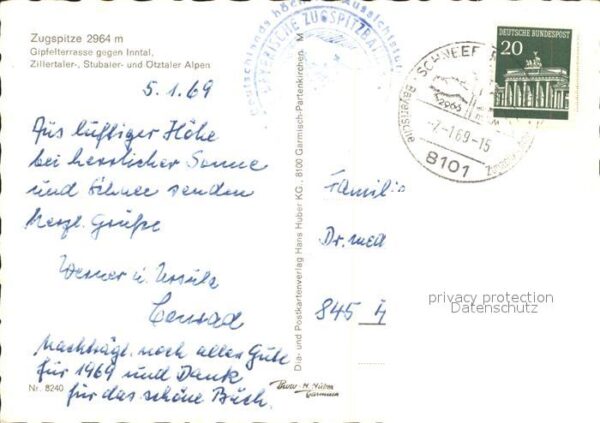 Zugspitze 2964 m
Gipfelterrasse gegen Inntal,
Zillertaler-, Stubaier- und Ötztaler Alpen
5.1.69
Aus luftiger Höhe
bei herrlicher Sonne
und Schnee senden
herzl. Grüße
Werner u. Ursula
Conrad
Nachträgl. noch alles Gute
für 1969 und Dank
für das schöne Buch.
Nr. 8240
Dia- und Postkartenverlag Hans Huber KG., 8100 Garmisch-Partenkirchen M
BAYERISCHE ZUGSPITZBAHN
DEUTSCHE BUNDESPOST
20
2965 m
-7-1.69-15
8101
Familie
Dr. med
845
privacy protection
Datenschutz